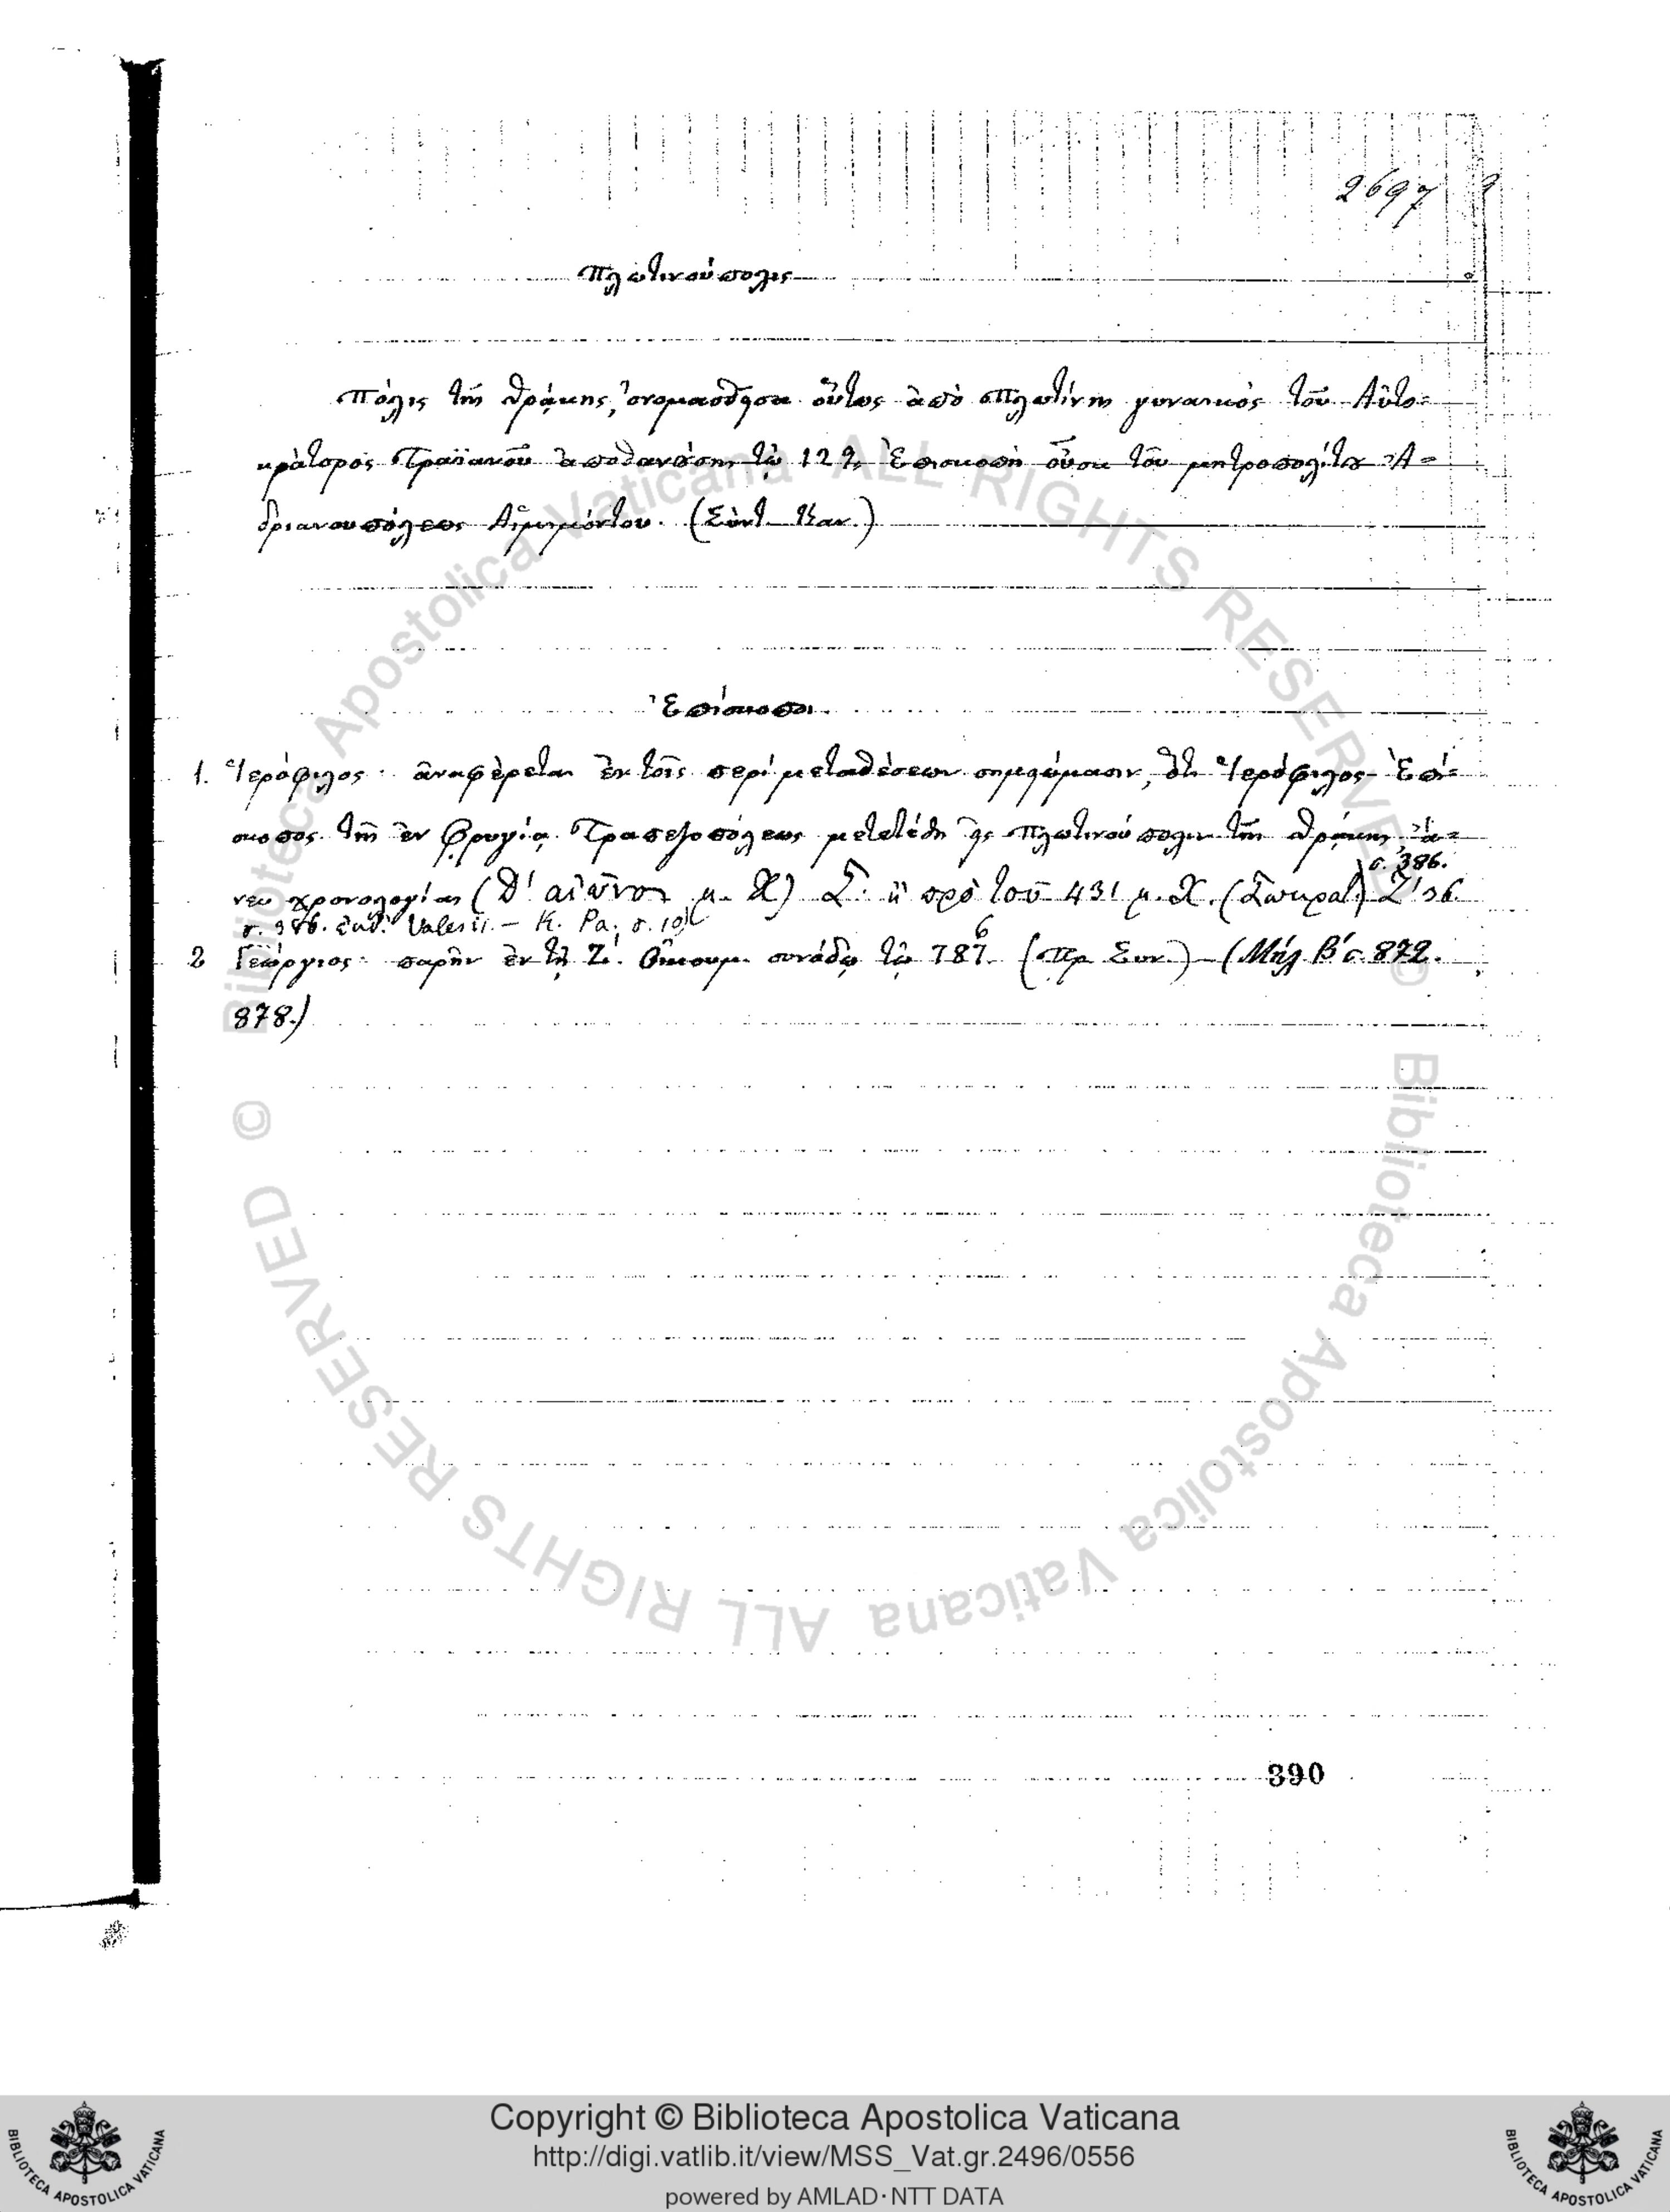 2697
Πλωτινούπολις
Πόλις τῆς Θράκης, ὀνομασθῆσα οὕτως ἀπὸ Πλωτίνης γυναικὸς τοῦ Αὐτο=
κράτορος Τραϊανοῦ ἀποθανούσης τῷ 129, Ἐπισκοπὴ οὖσα τοῦ μητροπολίτου Ἀ=
δριανουπόλεως Αἱμιμόντου. (Σύντ. Καν.)
Ἐπίσκοποι
1. Ἱερόφιλος· ἀναφέρεται ἐν τοῖς περὶ μεταθέσεων σημειώμασιν, ὅτι Ἱερόφιλος Ἐπί=
σκοπος τῆς ἐν Φρυγίᾳ Τραπεζοπόλεως μετετέθη εἰς Πλωτινούπολιν τῆς Θράκης, ἄ=
νευ χρονολογίας (Δ' αἰῶνος μ. Χ) ἢ πρὸ τοῦ 431 μ. Χ. (Σωκρατ. Ζ' 36. σ. 386.
σ. 386. ἐκδ. Valesii. – K. Pa. σ. 10)
2 Γεώργιος· παρῆν ἐν τῇ Ζ'. Οἰκουμ. συνόδῳ τῷ 787 6 (Πρ Συν.) – (Μήλ. Β' σ. 872.
878.)
390
© Biblioteca Apostolica Vaticana ALL RIGHTS RESERVED
© Biblioteca Apostolica Vaticana ALL RIGHTS RESERVED
BIBLIOTECA APOSTOLICA VATICANA
Copyright © Biblioteca Apostolica Vaticana
http://digi.vatlib.it/view/MSS_Vat.gr.2496/0556
powered by AMLAD·NTT DATA
BIBLIOTECA APOSTOLICA VATICANA